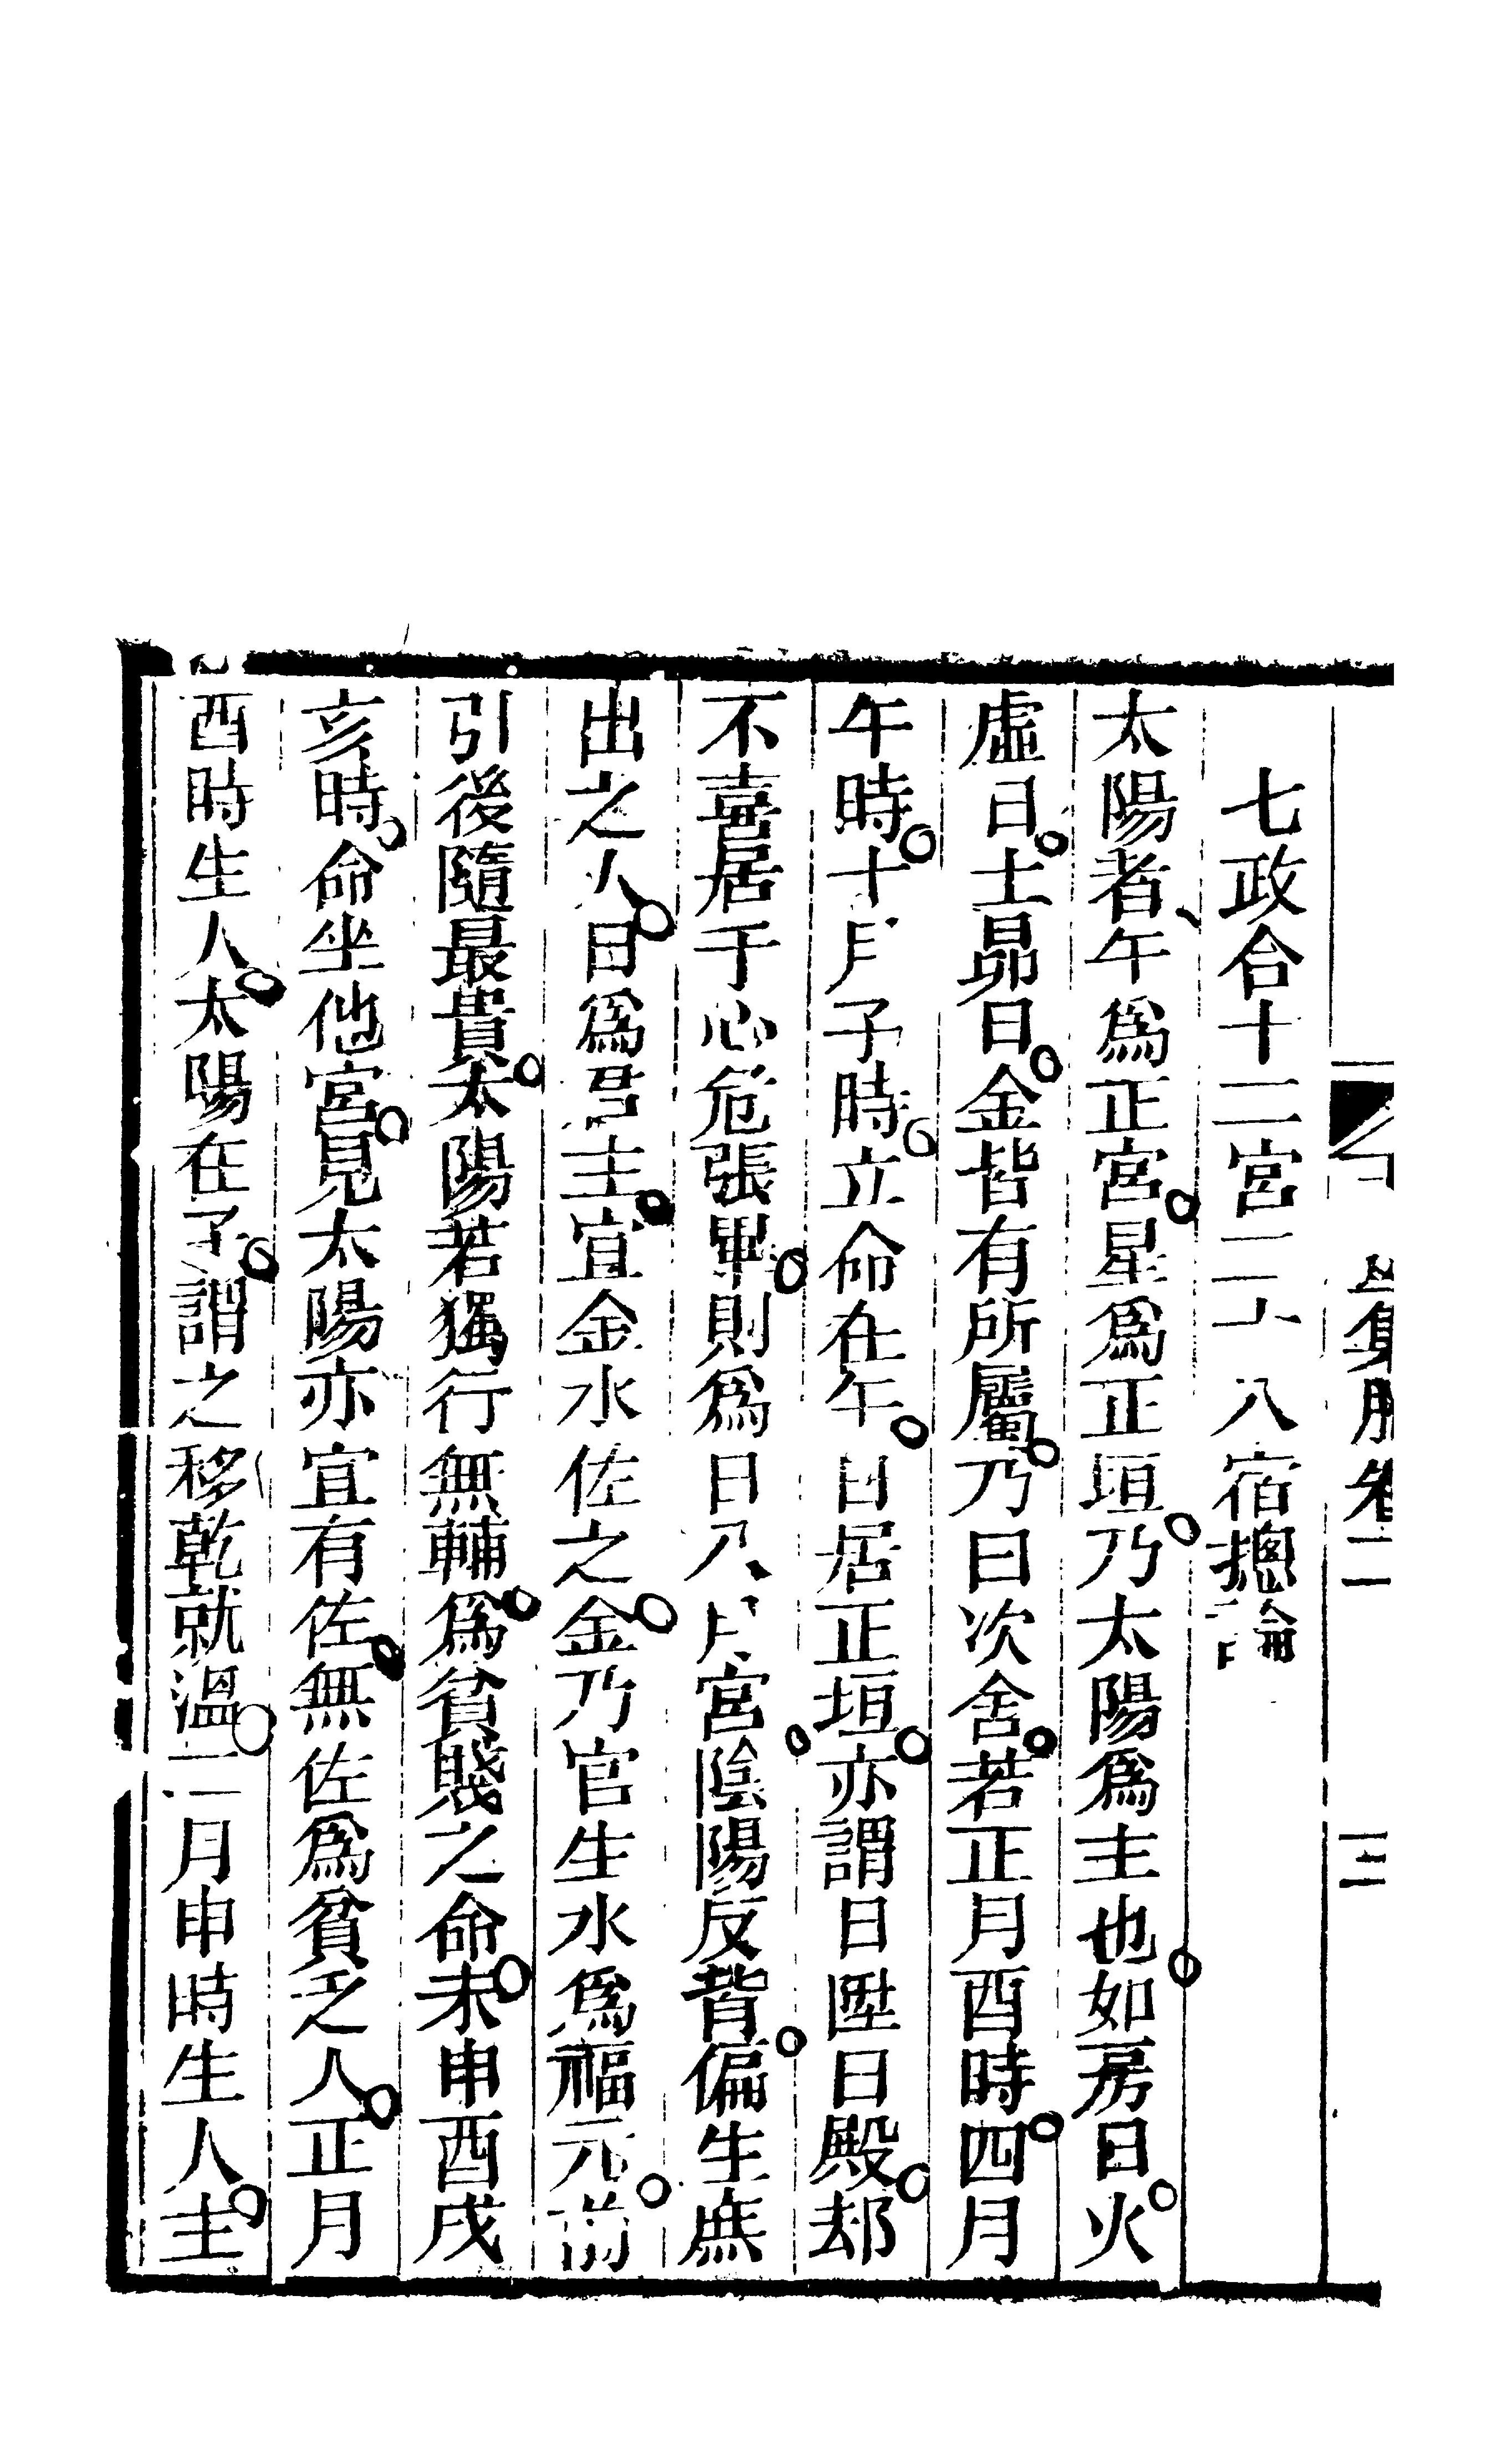 卷二 三
七政台十二宮二十八宿摠論
太陽者、午爲正宮。星爲正垣。乃太陽爲主也。如房日火。
虛日。土昴日。金皆有所屬。乃曰次舍。若正月酉時。四月
午時。十月子時。立命在午。日居正垣。亦謂日陞日殿。却
不喜居于心危張畢。則爲日入月宮。陰陽反背。偏生庶
出之人。日爲君主。宜金水佐之。金乃官生水爲福元。前
引後隨最貴。太陽若獨行無輔。爲貧賤之命。未申酉戌
亥時。命坐他宮。見太陽亦宜有佐。無佐爲貧乏人。正月
酉時生人。太陽在子。謂之移乾就溫。二月申時生人。主